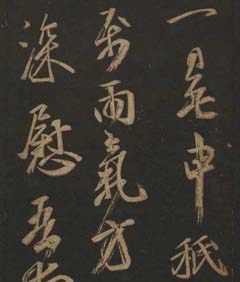 一申祇
雨氣方
深慰吾